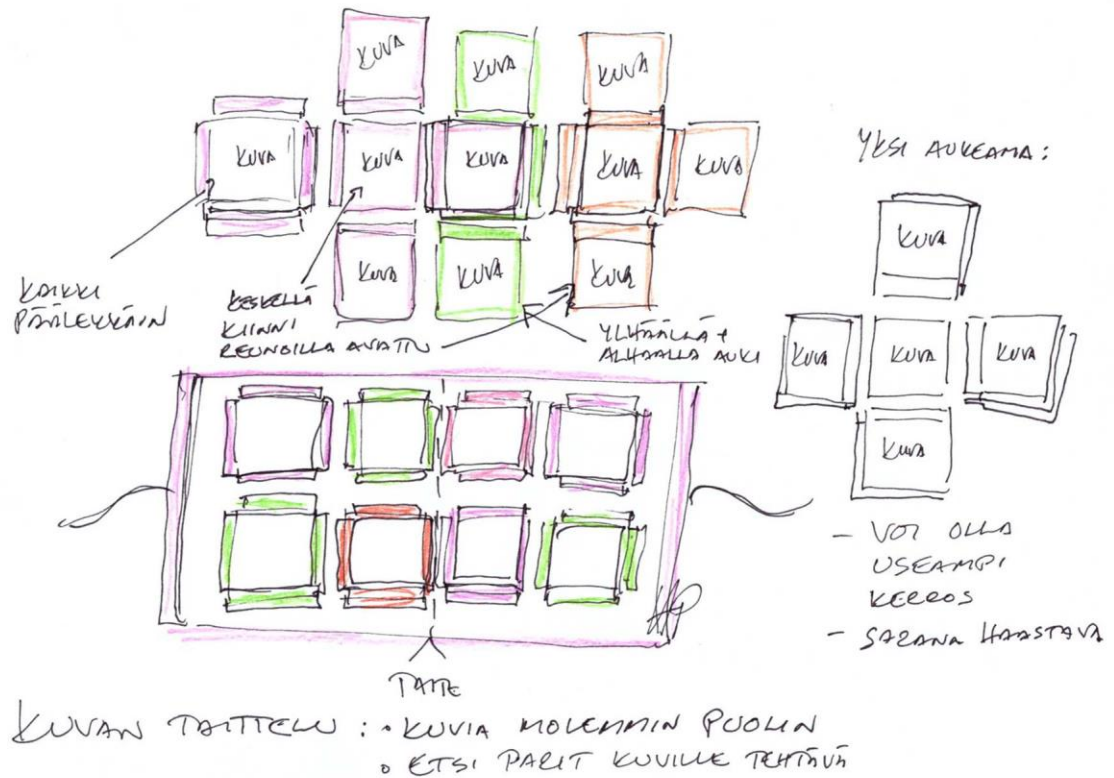 KUVA
KUVA
KUVA
KUVA
KUVA
KUVA
KUVA
KUVA
KUVA
KUVA
KUVA
KAIKKI
PÄÄLEKKÄIN
KESKELLÄ
KIINNI
REUNOILLA AVATTU
YLHÄÄLLÄ +
ALHAALLA AUKI
YKSI AUKEAMA:
KUVA
KUVA
KUVA
KUVA
KUVA
- VOI OLLA
USEAMPI
KERROS
- SARANA HAASTAVA
TAITE
KUVAN TAITTELU : • KUVIA MOLEMMIN PUOLIN
• ETSI PARIT KUVILLE TEHTÄVÄ